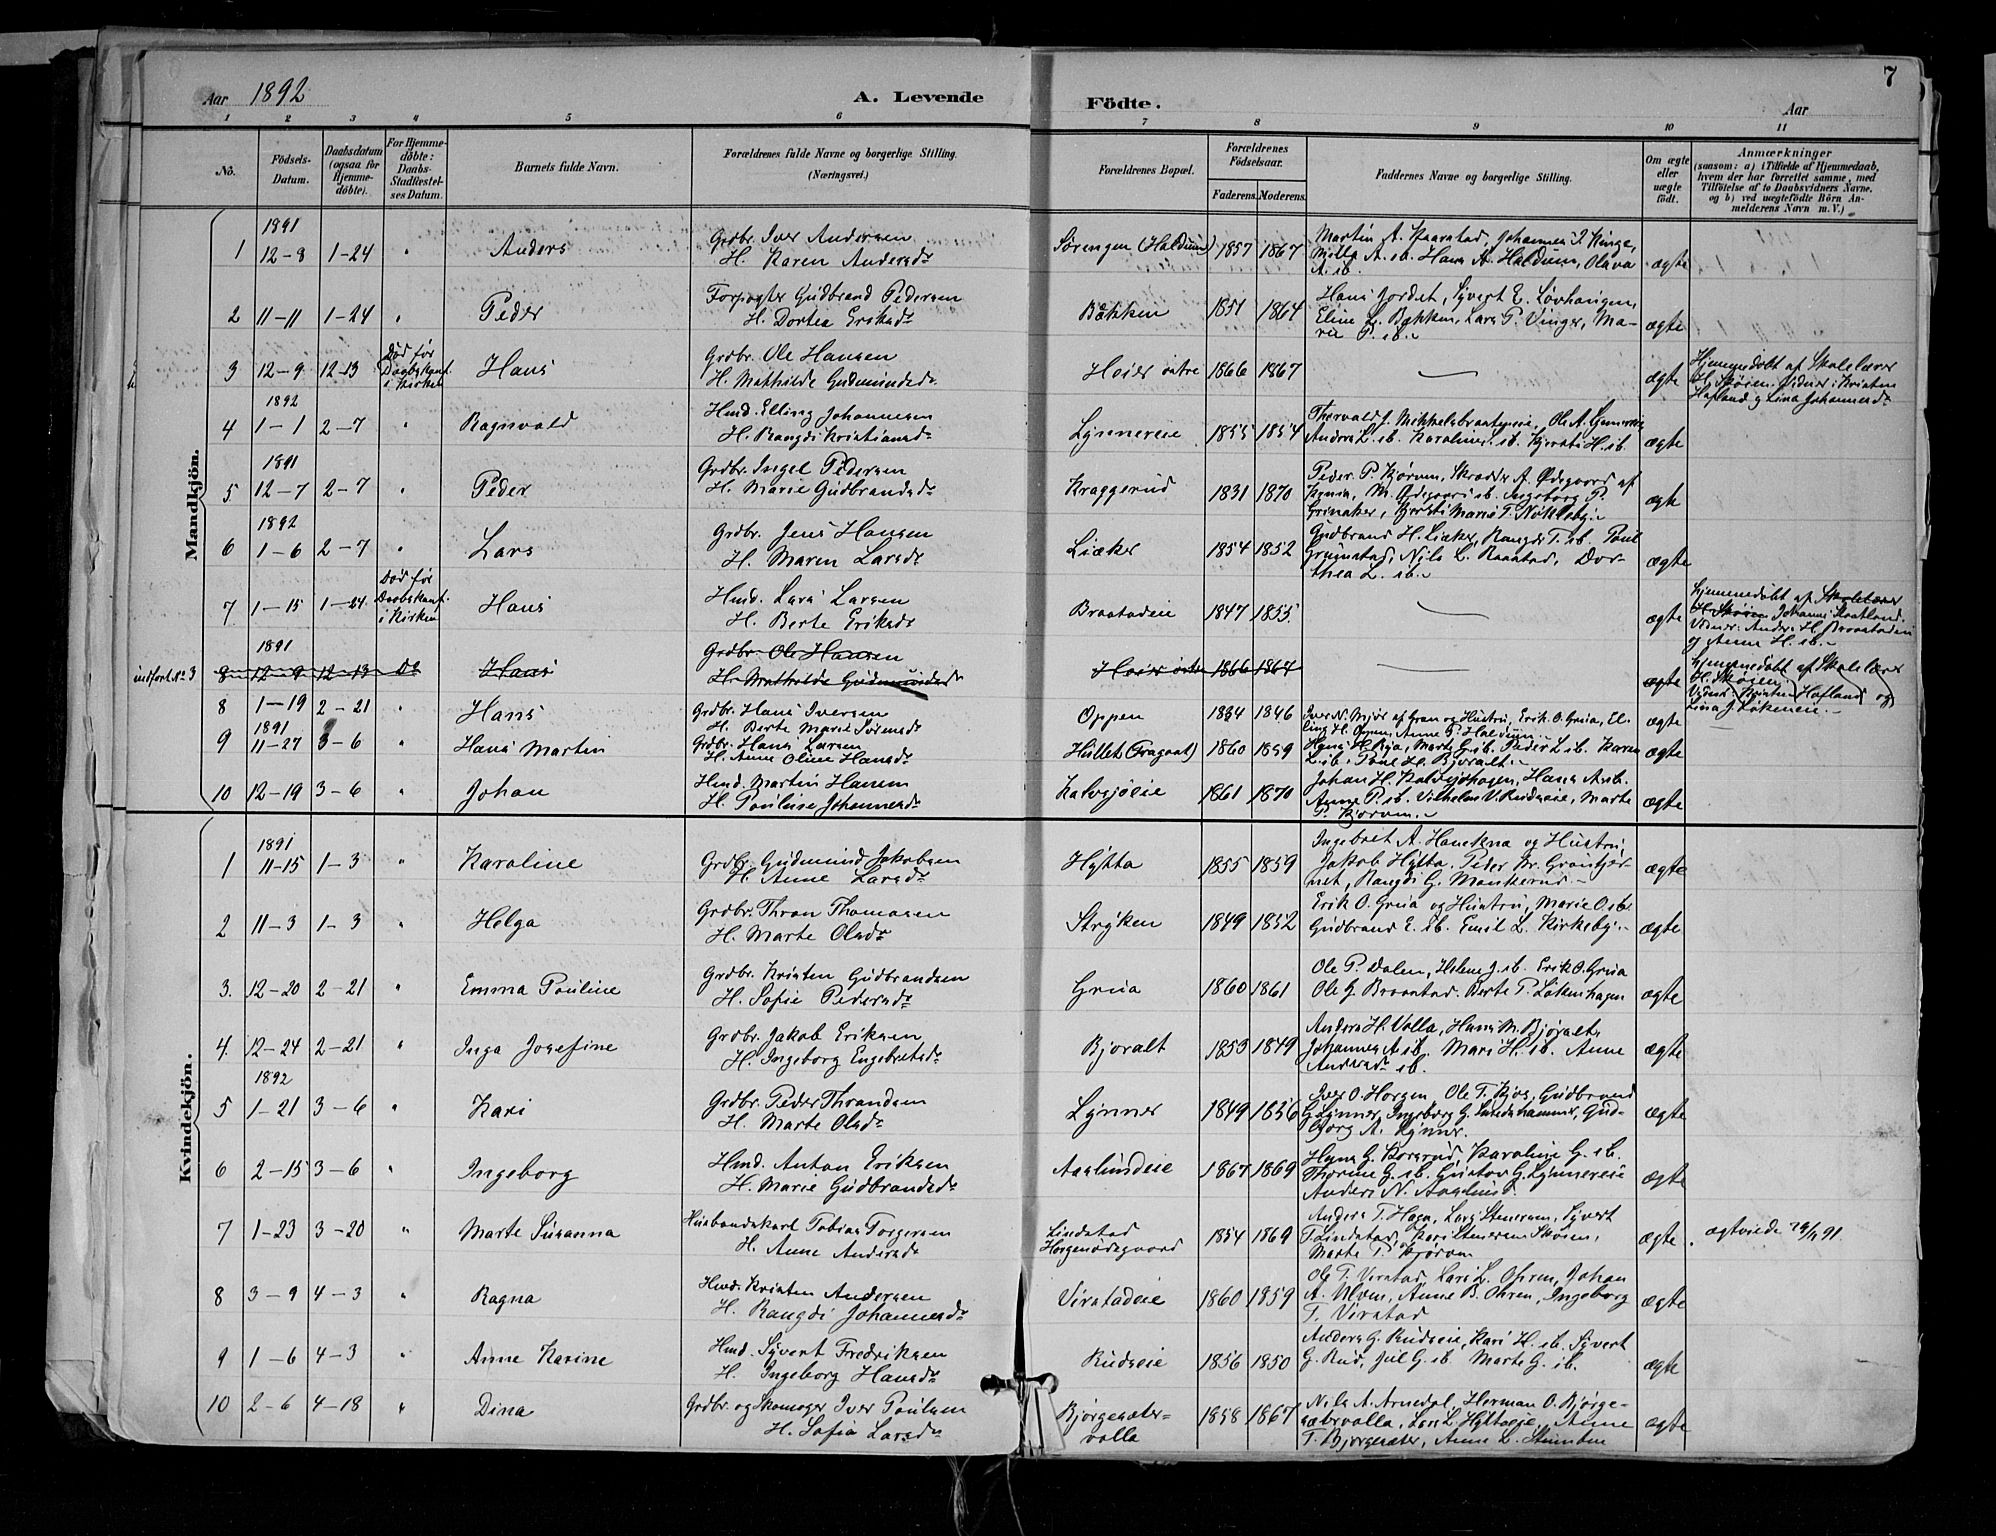 7
Aar 1892
A. Levende
Födte.
Aar
1 2 3 4 5 6 7 8 9 10 11
No.
Födsels-Datum.
Daabsdatum (ogsaa for Hjemmedöbte).
For Hjemmedöbte: Daabs-Stadfæstelses Datum.
Barnets fulde Navn.
Forældrenes fulde Navne og borgerlige Stilling. (Næringsvei.)
Forældrenes Bopæl.
Forældrenes Födselsaar.
Faderens. Moderens.
Faddernes Navne og borgerlige Stilling.
Om ægte eller uægte födt.
Anmærkninger
(saasom: a) i Tilfælde af Hjemmedaab, hvem der har forrettet samme, med Tilföielse af to Daabsvidners Navne. og b) ved uægtefödte Börn Anmelderens Navn m. V.)
Mandkjön.
1891
1 12-8 1-24 " Anders Grdbr. Iver Andersen
H. Karen Andersdr Sørengen (Haldum) 1857 1867 Martin A. Kaarstad, Johannes
Milla A. sb. Hans A. Haldum, Olava
A. sb. ægte
2 11-11 1-24 " Peder Forpagter Gudbrand Pedersen
H. Dortea Eriksdr Bækken 1851 1864 Hans Jordet, Syvert E. Løvhaugen,
Eline L. Bækken, Lars P. Vinger, Ma-
rie P. sb. ægte
3 12-9 12-13 Død før Daabskonf. i Kirken Hans Grdbr. Ole Hansen
H. Mathilde Gudmundsdr Hoier østre 1866 1867 — ægte Hjemmedøbt af Skolelærer
H. Skøien. Vidner: Kristen
Hafland og Lina Johannesdr
1892
4 1-1 2-7 " Ragnvald Hmd. Elling Johannesen
H. Rangdi Kristiansdr Lynnereie 1855 1854 Thorvald J. Mikkelsbraateneie, Ole A.
Anders L. sb. Karoline sb. Kjersti H. sb. ægte
1891
5 12-7 2-7 " Peder Grdbr. Ingel Pedersen
H. Marie Gudbrandsdr Kraggerud 1831 1870 Peder P. Kjørven, Skrædder A. Ødegaard af
M. Ødegaard sb. Ingeborg P.
Grinaker, Kjersti Marie T. Nøkleby ægte
1892
6 1-6 2-7 " Lars Grdbr. Jens Hansen
H. Maren Larsdr Liæker 1854 1852 Gudbrand H. Liæker, Rangdi T. sb. Paul
Grimstad, Nils L. Raastad, Dor-
thea L. sb. ægte
7 1-15 1-24 Død før Daabskonf. i Kirken Hans Hmd. Lars Larsen
H. Berte Eriksdr Braatadeie 1847 1855. — ægte Hjemmedøbt af Skolelærer
H. Skøien Johannes
Vidner: Anders H. Braastadeie
og Anne H. sb.
1891
indført No 3 8 12-9 12-13 Do Hans Grdbr. Ole Hansen
H. Mathilde Gudmundsdr Hoier østre 1866 1864 — ægte Hjemmedøbt af Skolelærer
H. Skøien.
Vidner: Kristen Hafland og
Lina J. Løkeneie.
8 1-19 2-21 " Hans Grdbr. Hans Iversen
H. Berte Marie Sørensdr Oppen 1834 1846 Iver N. Mjør af Gran og Hustru, Erik O. Grua, El-
ling H. Oppen, Anne P. Haldum ægte
1891
9 11-27 3-6 " Hans Martin Grdbr. Hans Larsen
H. Anne Oline Hansdr Hullet (Fragaat) 1860 1859 Hans H. Rya, Marte G. sb. Peder L. sb. Karen
L. sb. Paul H. Bjøralt. ægte
10 12-19 3-6 " Johan Hmd. Martin Hansen
H. Pauline Johannesdr Kalvsjøeie 1861 1870 Johan H. Kalvsjøhagen, Hans A. sb.
Anne P. sb. Vilhelm V. Rudseie, Marte
P. Kjørven. ægte
Kvindekjön.
1891
1 11-15 1-3 " Karoline Grdbr. Gudmund Jakobsen
H. Anne Larsdr Hytta 1855 1859 Ingebret A. Haneknæ og Hustru,
Jakob Hytta, Peder Br. Grøntjer-
net, Rangdi G. Monkerud ægte
2 11-3 1-3 " Helga Grdbr. Thron Thomasen
H. Marte Olsdr Stryken 1849 1852 Erik O. Grua og Hustru, Marie O. sb.
Gudbrand E. sb. Emil L. Kirkeby. ægte
3. 12-20 2-21 " Emma Pauline Grdbr. Kristen Gudbrandsen
H. Sofie Pedersdr Grua 1860 1861 Ole P. Dalen, Helene J. sb. Erik O. Grua
Ole G. Braastad. Berte P. Løkenhagen ægte
4. 12-24 2-21 " Inga Josefine Grdbr. Jakob Eriksen
H. Ingeborg Engebretsdr Bjoralt 1853 1849 Anders H. Volla, Hans M. Bjøralt,
Johannes A. sb. Mari H. sb. Anne
Andersdr sb. ægte
1892
5 1-21 3-6 " Kari Grdbr. Peder Throndsen
H. Marte Olsdr Lynner 1849 1856 Iver O. Horgen Ole T. Kjos, Gudbrand
G. Lynner, Ingeborg G. Sandshammer, Gud-
bjørg A. Lynner. ægte
6 2-15 3-6 " Ingeborg Hmd. Anton Eriksen
H. Marie Gudbrandsdr Aaslundeie 1867 1869 Hans G. Korsrud, Karoline G. sb.
Thorine G. sb. Gustav G. Lynnereie
Anders N. Aaslund. ægte
7 1-23 3-20 " Marte Susanna Husbondskarl Tobias Torgersen
H. Anne Andersdr Lindstad
Horgenødegaard 1854 1869 Anders T. Haga, Lars Stensrum, Syvert
T. Lindstad, Kari Stensrum Skøien,
Marte P. Kjørven ægte . ægteviede 29/ 91.
8 3-9 4-3 " Ragna Hmd. Kristen Andersen
H. Rangdi Johannesdr Virstadeie 1860 1859 Ole T. Virstad, Kari L. Ohren, Johan
A. Ulven, Anne B. Ohren, Ingeborg
T. Virstad ægte
9 1-6 4-3 " Anne Karine Hmd. Syvert Fredriksen
H. Ingeborg Hansdr Rudseie 1856 1850 Anders G. Rudseie, Kari H. sb. Syvert
G. Rud, Jul G. sb. Marte G. sb. ægte
10 2-6 4-18 " Dina Grdbr. og Skomager Iver Paulsen
H. Sofie Larsdr Bjørgesæter-
volla 1858 1867 Nils A. Arnedal, Herman O. Bjørge-
sætervolla, Lars L. Hytteeie, Anne
T. Bjørgesæter, Anne L. Stumten ægte